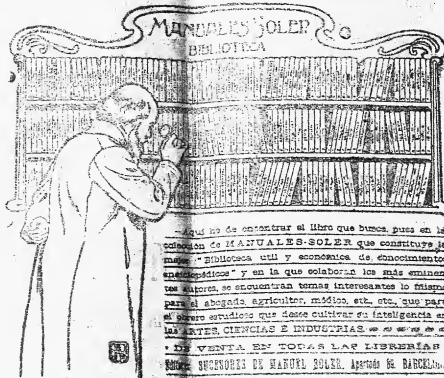 MANUALES SOLER
BIBLIOTECA
—Aquí he de encontrar el libro que busco, pues en la
colección de MANUALES-SOLER que constituye la
mejor "Biblioteca util y económica de conocimientos
enciclopédicos" y en la que colaboran los más eminen-
tes autores, se encuentran temas interesantes lo mismo
para el abogado, agricultor, médico, etc., etc., que para
el obrero estudioso que desee cultivar su inteligencia en
las ARTES, CIENCIAS É INDUSTRIAS
DE VENTA EN TODAS LAS LIBRERÍAS
SUCESORES DE MANUEL SOLER, Apartado 89, BARCELONA